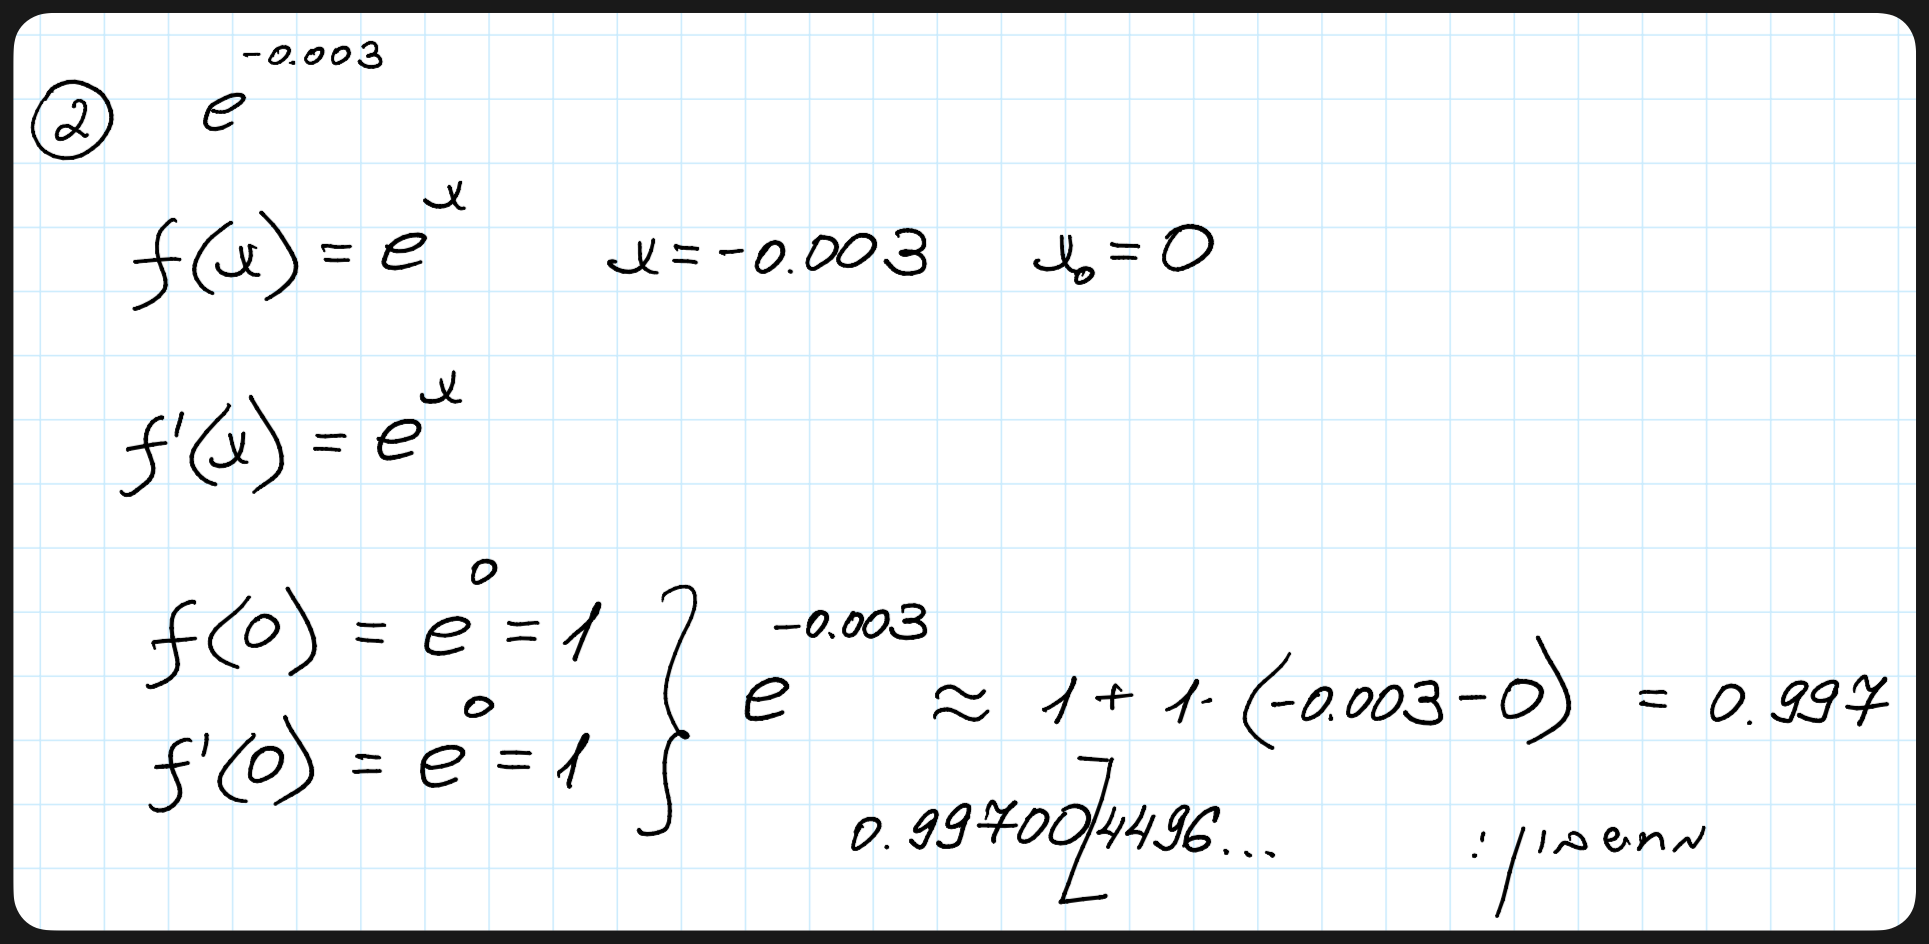 ② e^{-0.003}
f(x) = e^x    x = -0.003    x₀ = 0
f'(x) = e^x
f(0) = e^0 = 1
f'(0) = e^0 = 1
} e^{-0.003} ≈ 1 + 1·(-0.003-0) = 0.997
0.997004496...